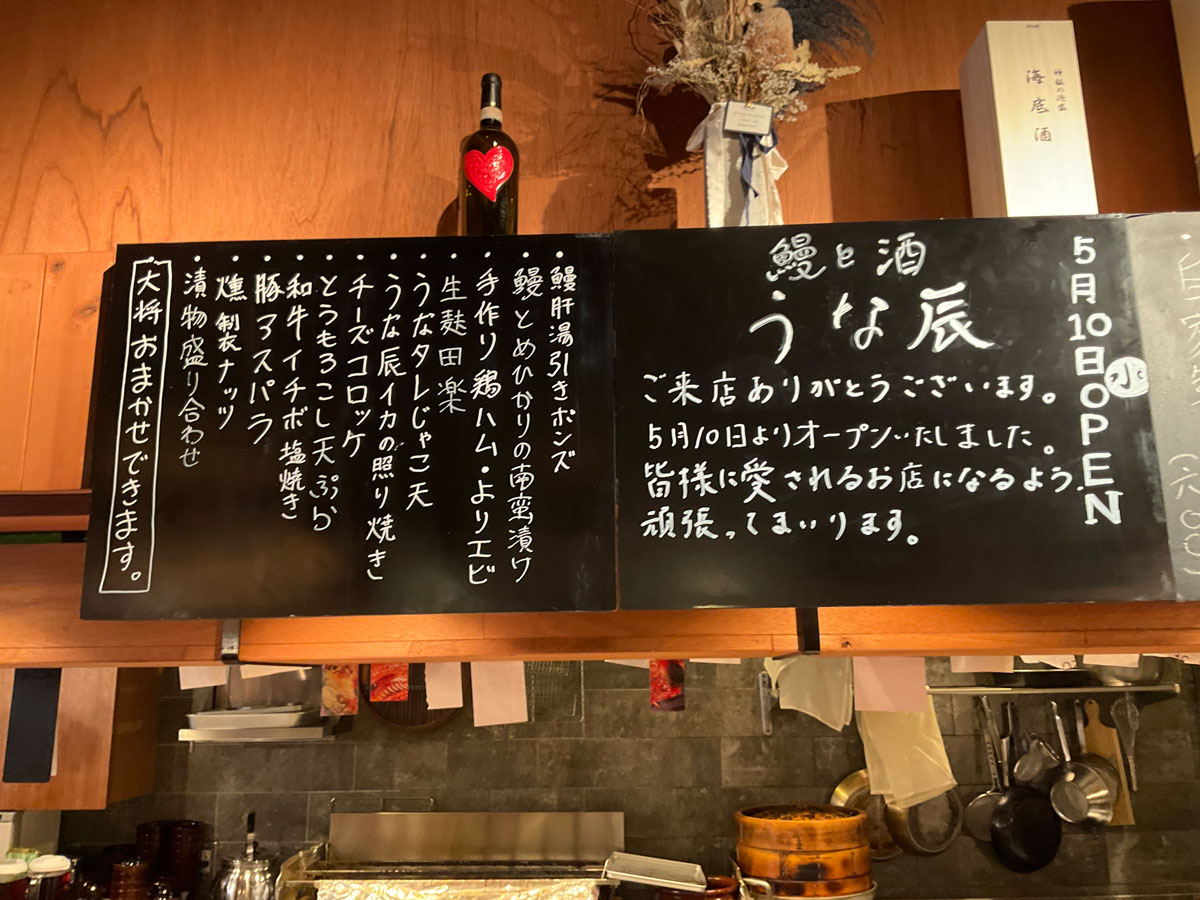 海底酒
5月10日㊌OPEN
鰻と酒
うな辰
ご来店ありがとうございます。
5月10日よりオープンいたしました。
皆様に愛されるお店になるよう、
頑張ってまいります。
・鰻肝湯引きポンズ
・鰻とめひかりの南蛮漬ケ
・手作り鶏ハム・よりエビ
・生麩田楽
・うなタレじゃこ天
・うな辰イカの照り焼き
・チーズコロッケ
・とうもろこし天ぷら
・和牛イチボ塩焼き
・豚アスパラ
・燻製ナッツ
・漬物盛り合わせ
大将おまかせできます。